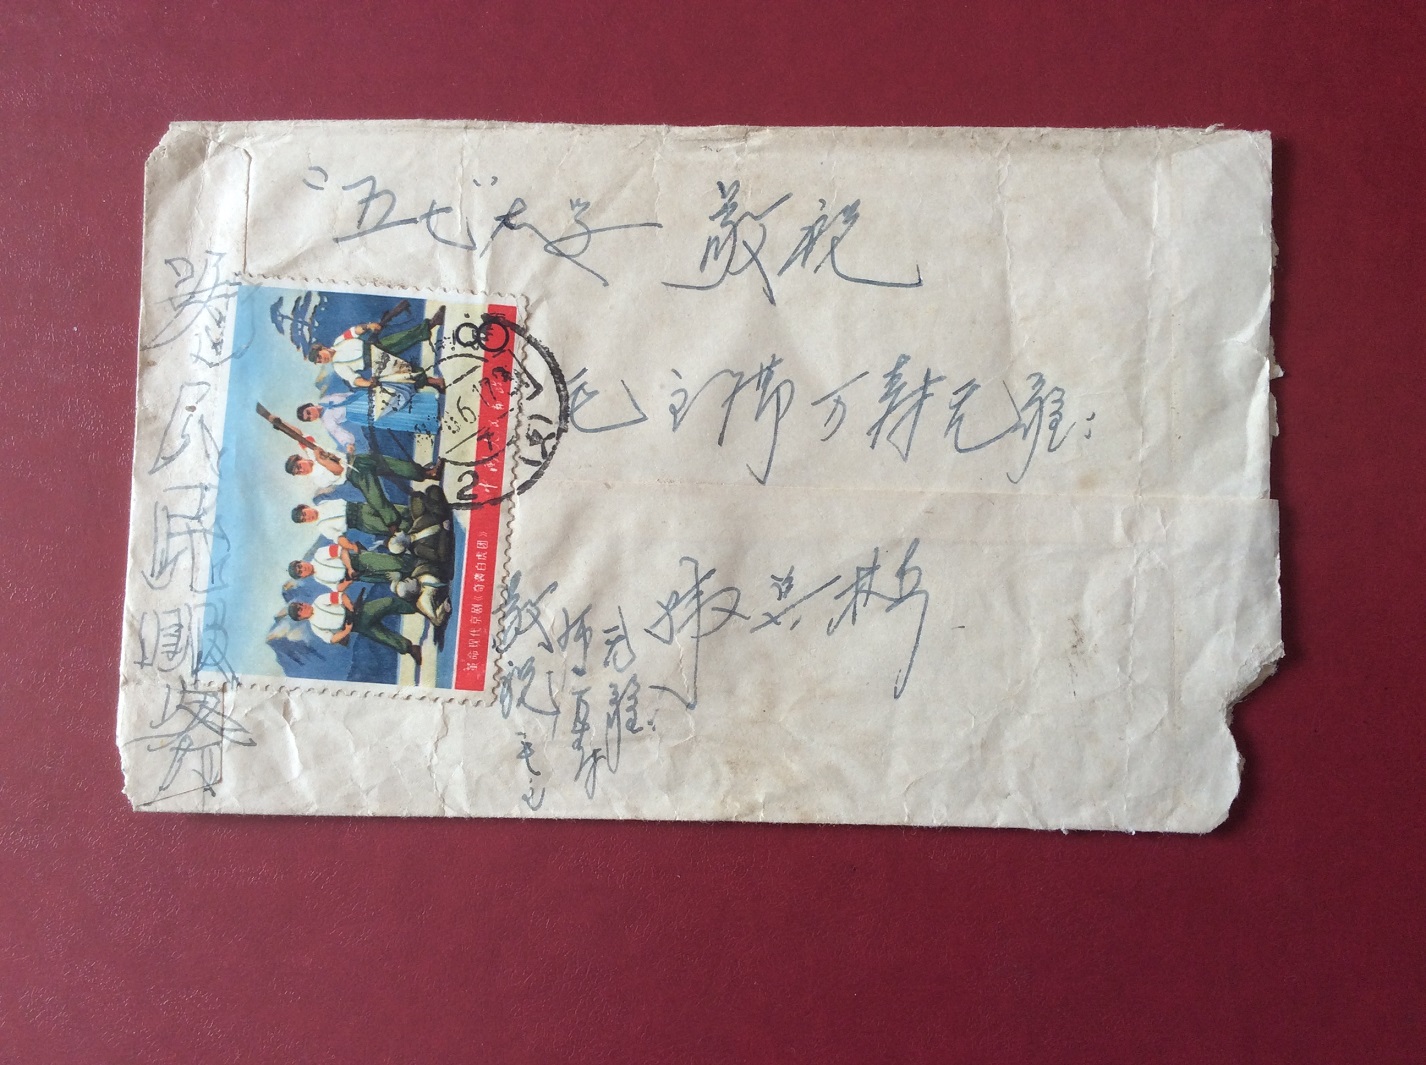 "五七"大学 敬祝
毛主席万寿无疆:
张兴林
敬祝毛主
席万寿
无疆:
为人民服务
革命现代京剧《奇袭白虎团》
8
2